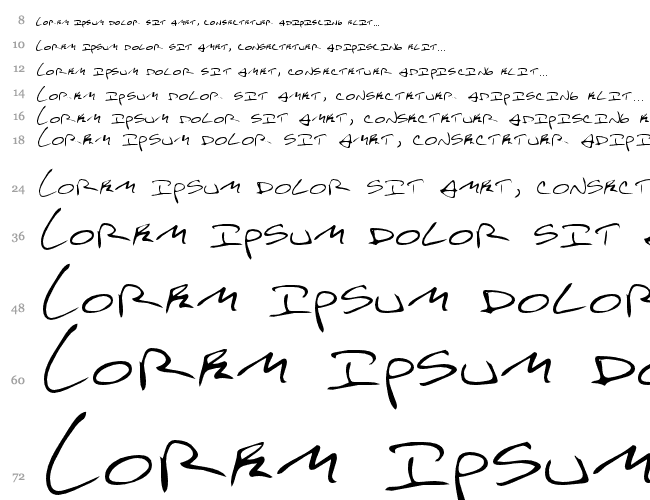 8 Lorem Ipsum dolor sit amet, consectetuer adipiscing elit...
10 Lorem Ipsum dolor sit amet, consectetuer adipiscing elit...
12 Lorem Ipsum dolor sit amet, consectetuer adipiscing elit...
14 Lorem Ipsum dolor sit amet, consectetuer adipiscing elit...
16 Lorem Ipsum dolor sit amet, consectetuer adipiscing el
18 Lorem Ipsum dolor sit amet, consectetuer adipi
24 Lorem Ipsum dolor sit amet, consect
36 Lorem Ipsum dolor sit
48 Lorem Ipsum dolor
60 Lorem Ipsum do
72 Lorem Ipsum